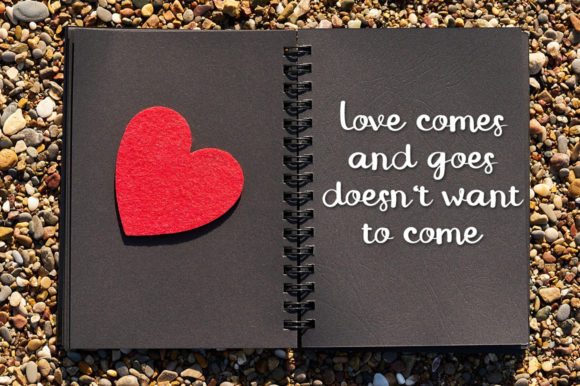 love comes
and goes
doesn't want
to come